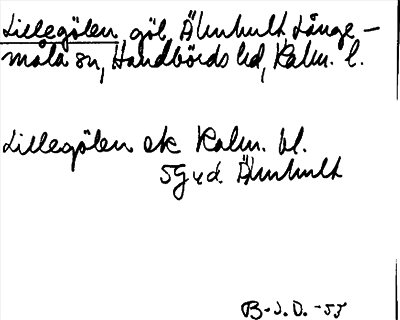 Lillegölen, göl, Älmhult, Långe-
måla sn, Handbörds hd, Kalm. l.
Lillegölen ek Kalm. bl.
5G v d. Älmhult
B-J.D. -55